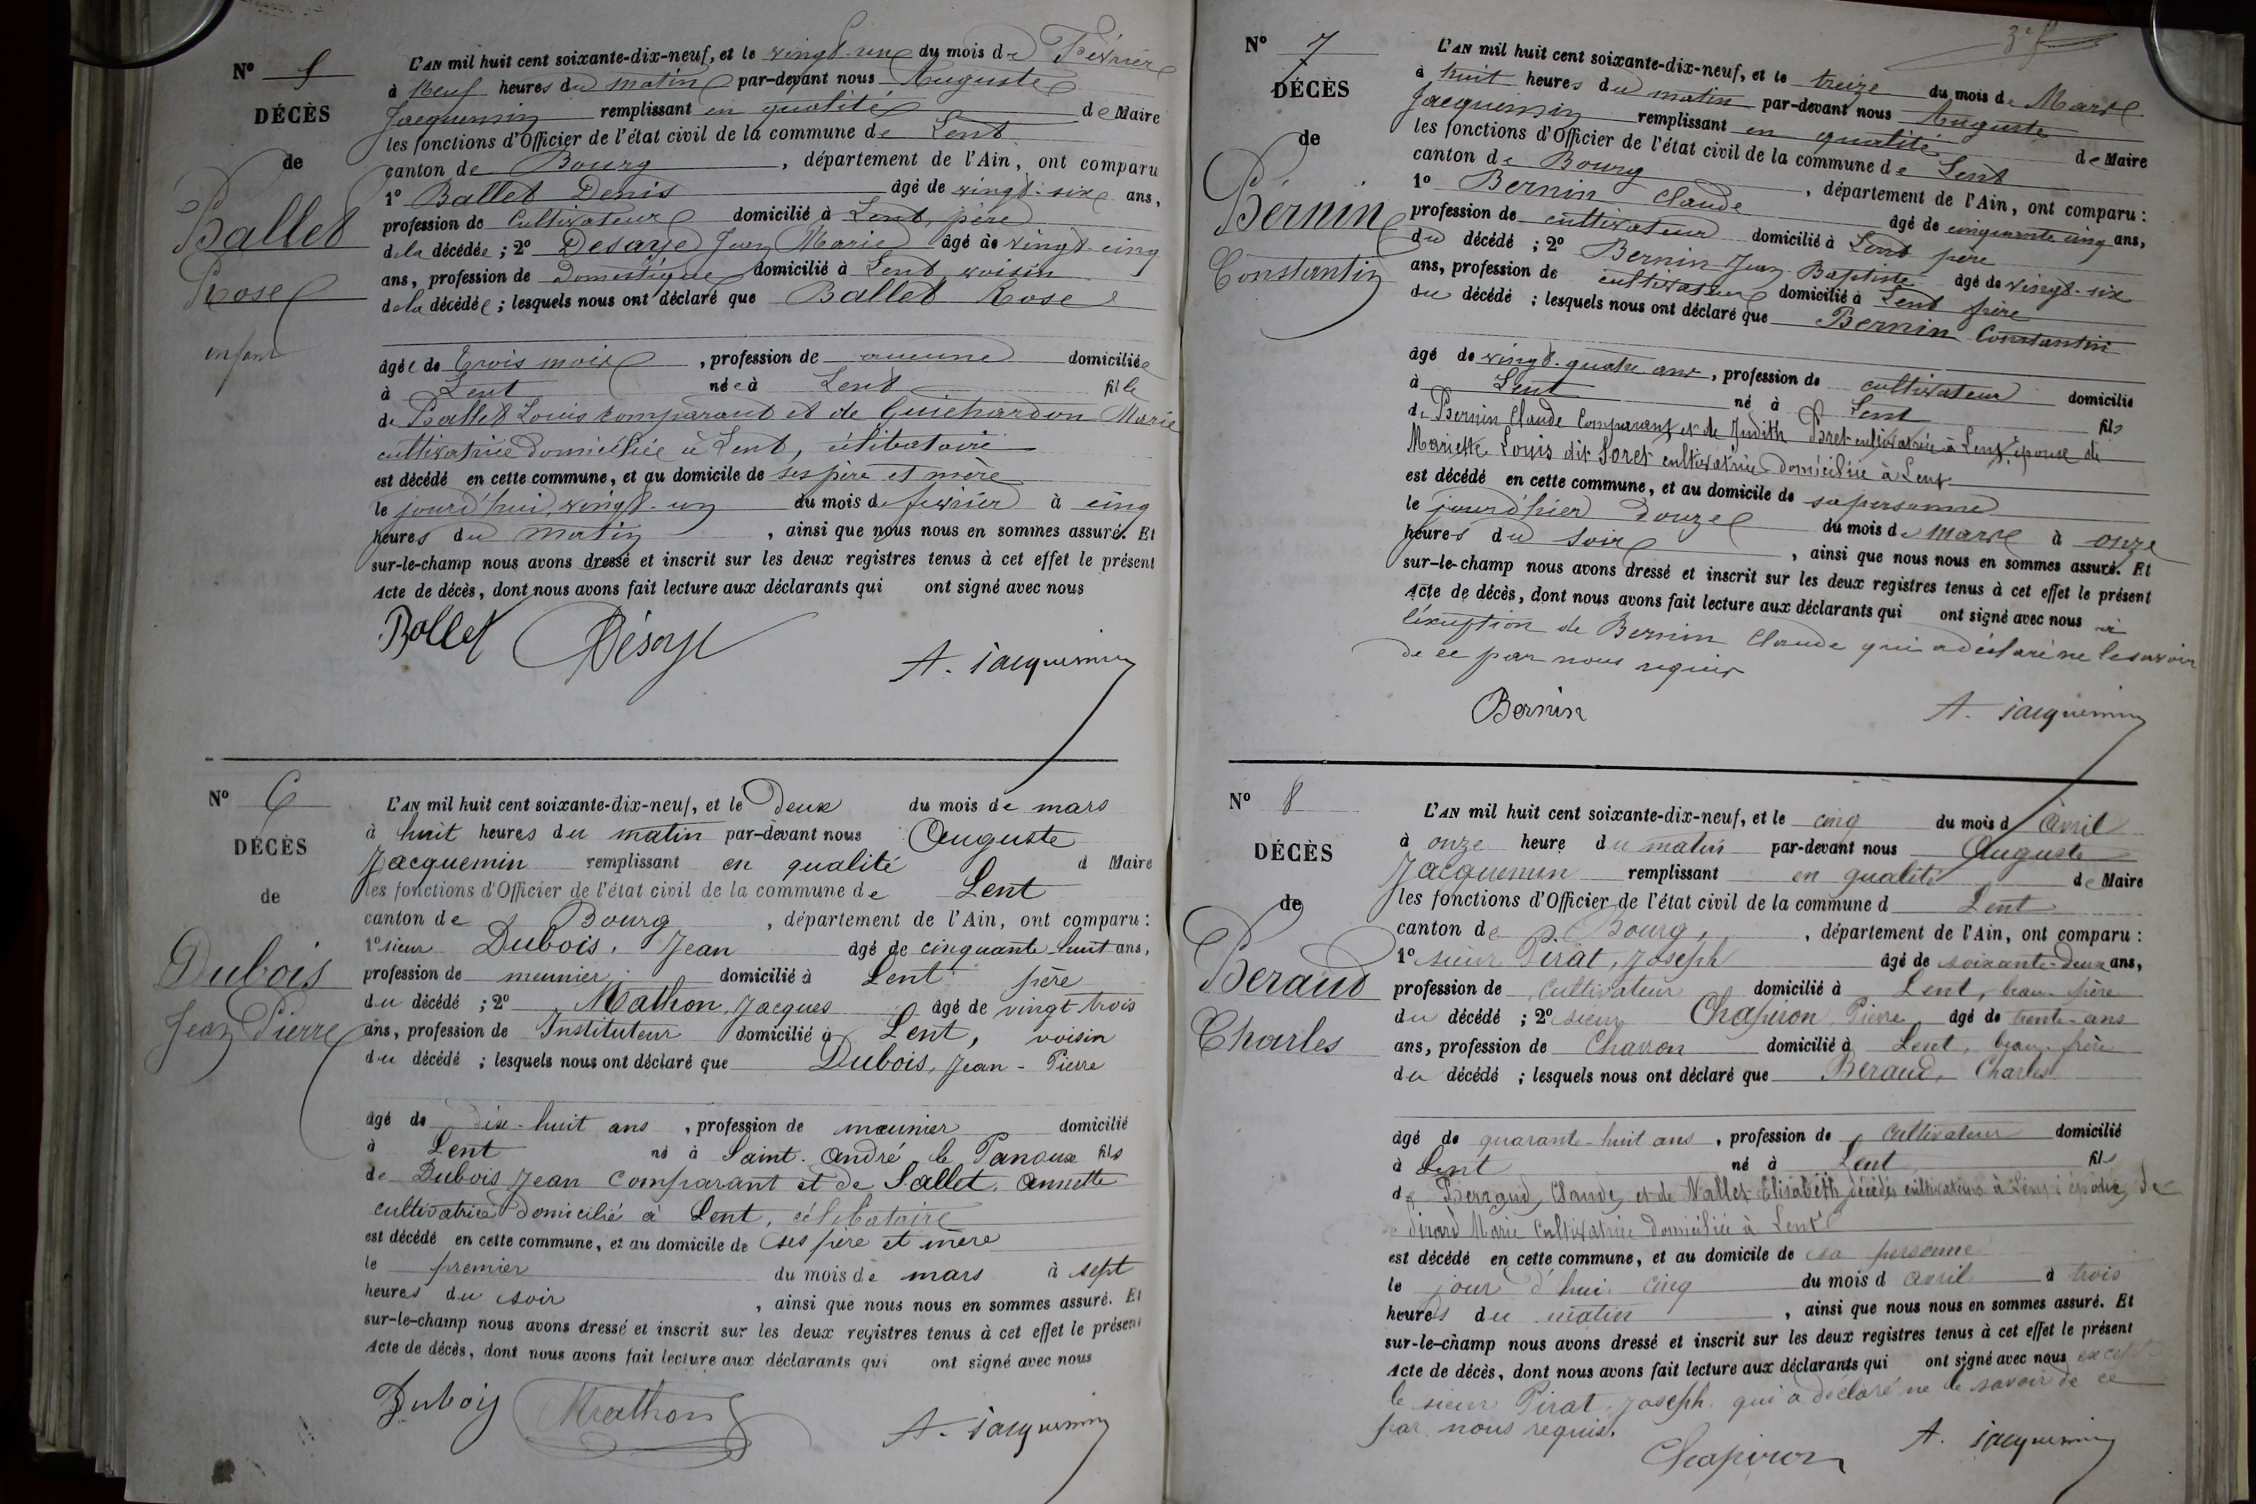 N° 5
DÉCÈS
de
Ballet
Rose
enfant
L'AN mil huit cent soixante-dix-neuf, et le vingt-un du mois de Février
à Neuf heures du matin par-devant nous Auguste
Jacquemin remplissant en qualité de Maire
les fonctions d'Officier de l'état civil de la commune de Lent
canton de Bourg, département de l'Ain, ont comparu
1° Ballet Denis âgé de vingt-six ans,
profession de Cultivateur domicilié à Lent, père
de la décédée ; 2° Desaye Jean Marie âgé de vingt-cinq
ans, profession de Domestique domicilié à Lent, voisin
de la décédée ; lesquels nous ont déclaré que Ballet Rose
âgée de trois mois, profession de aucune domiciliée
à Lent née à Lent fille
de Ballet Louis comparant et de Guichardon Marie
cultivatrice domiciliée à Lent, célibataire
est décédé en cette commune, et au domicile de ses père et mère
le jourd'hui vingt-un du mois de février à cinq
heures du matin, ainsi que nous nous en sommes assuré. Et
sur-le-champ nous avons dressé et inscrit sur les deux registres tenus à cet effet le présent
Acte de décès, dont nous avons fait lecture aux déclarants qui ont signé avec nous
Ballet Désaye A. Jacquemin
N° 6
DÉCÈS
de
Dubois
Jean Pierre
L'AN mil huit cent soixante-dix-neuf, et le Deux du mois de mars
à huit heures du matin par-devant nous Auguste
Jacquemin remplissant en qualité d Maire
les fonctions d'Officier de l'état civil de la commune de Lent
canton de Bourg, département de l'Ain, ont comparu :
1° sieur Dubois, Jean âgé de cinquante huit ans,
profession de meunier domicilié à Lent père
du décédé ; 2° Mathon, Jacques âgé de vingt trois
ans, profession de Instituteur domicilié à Lent, voisin
du décédé ; lesquels nous ont déclaré que Dubois, Jean-Pierre
âgé de dix-huit ans, profession de meunier domicilié
à Lent né à Saint-André le Panoux fils
de Dubois Jean comparant et de Sallet, Annette
cultivatrice domicilié à Lent, célibataire
est décédé en cette commune, et au domicile de ses père et mère
le premier du mois de mars à sept
heures du soir, ainsi que nous nous en sommes assuré. Et
sur-le-champ nous avons dressé et inscrit sur les deux registres tenus à cet effet le présent
Acte de décès, dont nous avons fait lecture aux déclarants qui ont signé avec nous
Dubois Mathon A. Jacquemin
N° 7
DÉCÈS
de
Bernin
Constantin
L'AN mil huit cent soixante-dix-neuf, et le treize du mois de Mars
à huit heures du matin par-devant nous Auguste
Jacquemin remplissant en qualité de Maire
les fonctions d'Officier de l'état civil de la commune de Lent
canton de Bourg, département de l'Ain, ont comparu :
1° Bernin Claude âgé de cinquante cinq ans,
profession de cultivateur domicilié à Lent père
du décédé ; 2° Bernin Jean Baptiste âgé de vingt-six
ans, profession de cultivateur domicilié à Lent frère
du décédé ; lesquels nous ont déclaré que Bernin Constantin
âgé de vingt-quatre ans, profession de cultivateur domicilié
à Lent né à Lent fils
de Bernin Claude Comparant et de Judith Pret cultivatrice à Lent, époux de
Mariette Louis dit Loret cultivatrice domiciliée à Lent
est décédé en cette commune, et au domicile de sa personne
le jourd'hier douze du mois de mars à onze
heures du soir, ainsi que nous nous en sommes assuré. Et
sur-le-champ nous avons dressé et inscrit sur les deux registres tenus à cet effet le présent
Acte de décès, dont nous avons fait lecture aux déclarants qui ont signé avec nous à
l'exception de Bernin Claude qui a déclaré ne le savoir
de ce par nous requis
Bernin A. Jacquemin
N° 8
DÉCÈS
de
Beraud
Charles
L'AN mil huit cent soixante-dix-neuf, et le cinq du mois d Avril
à onze heure du matin par-devant nous Auguste
Jacquemin remplissant en qualité de Maire
les fonctions d'Officier de l'état civil de la commune d Lent
canton de Bourg, département de l'Ain, ont comparu :
1° sieur Pirat, Joseph âgé de soixante-deux ans,
profession de Cultivateur domicilié à Lent, beau-père
du décédé ; 2° sieur Chapiron Pierre âgé de trente-ans
ans, profession de Charron domicilié à Lent, beau-frère
du décédé ; lesquels nous ont déclaré que Beraud, Charles
âgé de quarante-huit ans, profession de Cultivateur domicilié
à Lent né à Lent fils
de Beraud, Claude, et de Nallet Elisabeth décédés cultivateurs à Lent époux de
Pirard Marie Cultivatrice domiciliée à Lent
est décédé en cette commune, et au domicile de sa personne
le jour d'hui cinq du mois d avril à trois
heures du matin, ainsi que nous nous en sommes assuré. Et
sur-le-champ nous avons dressé et inscrit sur les deux registres tenus à cet effet le présent
Acte de décès, dont nous avons fait lecture aux déclarants qui ont signé avec nous excepté
le sieur Pirat Joseph qui a déclaré ne le savoir de ce
par nous requis.
Chapiron A. Jacquemin